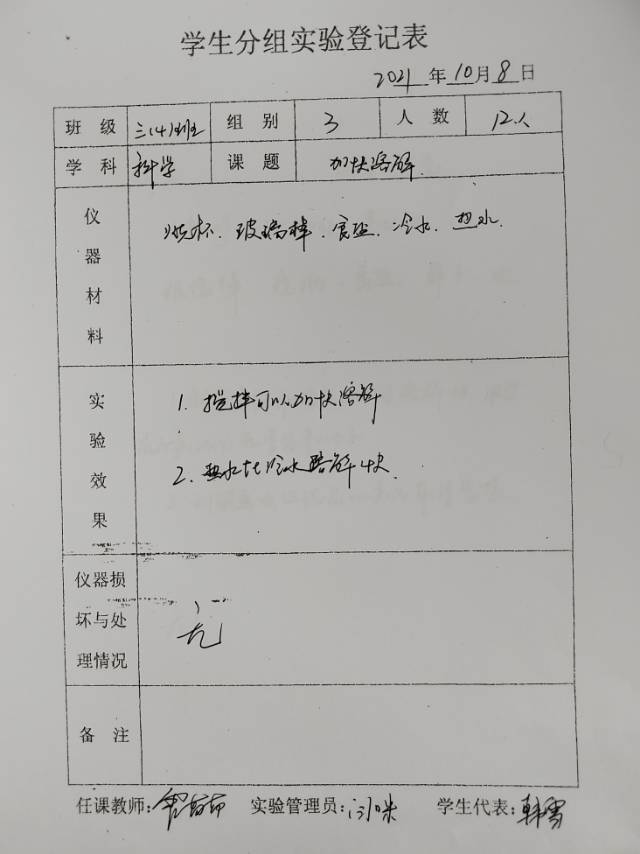 学生分组实验登记表
2021 年 10 月 8 日
班级 三(4)班 组别 3 人数 12人
学科 科学 课题 加快溶解
仪器材料 烧杯、玻璃棒、食盐、冷水、热水.
实验效果 1. 搅拌可以加快溶解
2. 热水比冷水溶解快.
仪器损
坏与处 无
理情况
备注
任课教师: 实验管理员: 学生代表:韩雪